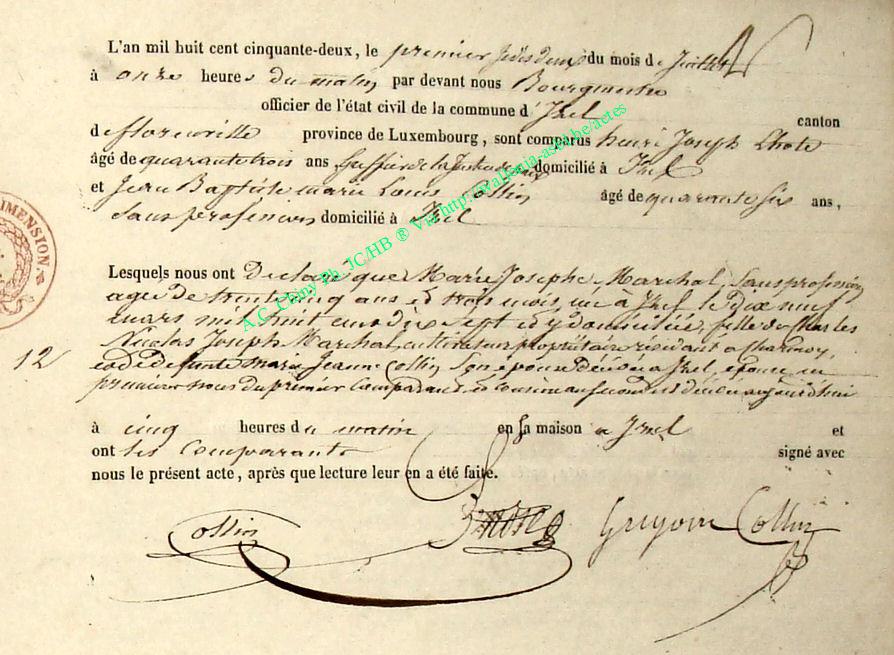 L'an mil huit cent cinquante-deux, le premier du mois de Juillet
à onze heures du matin par devant nous Bourgmestre
officier de l'état civil de la commune d'Izel canton
de florenville province de Luxembourg, sont comparus henri Joseph Lhote
âgé de quarante trois ans huissier de la Justice de domicilié à Izel
et Jean Baptiste marie Louis Collin âgé de quarante six ans,
sans profession domicilié à Izel
Lesquels nous ont Déclaré que Marie Josephe Marchal, sans profession
agée de trente cinq ans et trois mois, née à Izel le dix neuf
mars mil huit cent dix sept et y domiciliée, fille de Charles
Nicolas Joseph Marchal, cultivateur propriétaire résidant a Charmoy,
et de defunte marie Jeanne Collin son épouse décédée a Izel, épouse en
premieres noces du premier Comparant, et cousine au second est décédée aujourd'hui
12
à cinq heures du matin en sa maison a Izel et
ont les Comparants signé avec
nous le présent acte, après que lecture leur en a été faite.
Collin Grégoire Collin
DIMENSION
A.C. Chiny Ph. JC/HB ® Via http://wallonia-asbl.be/actes